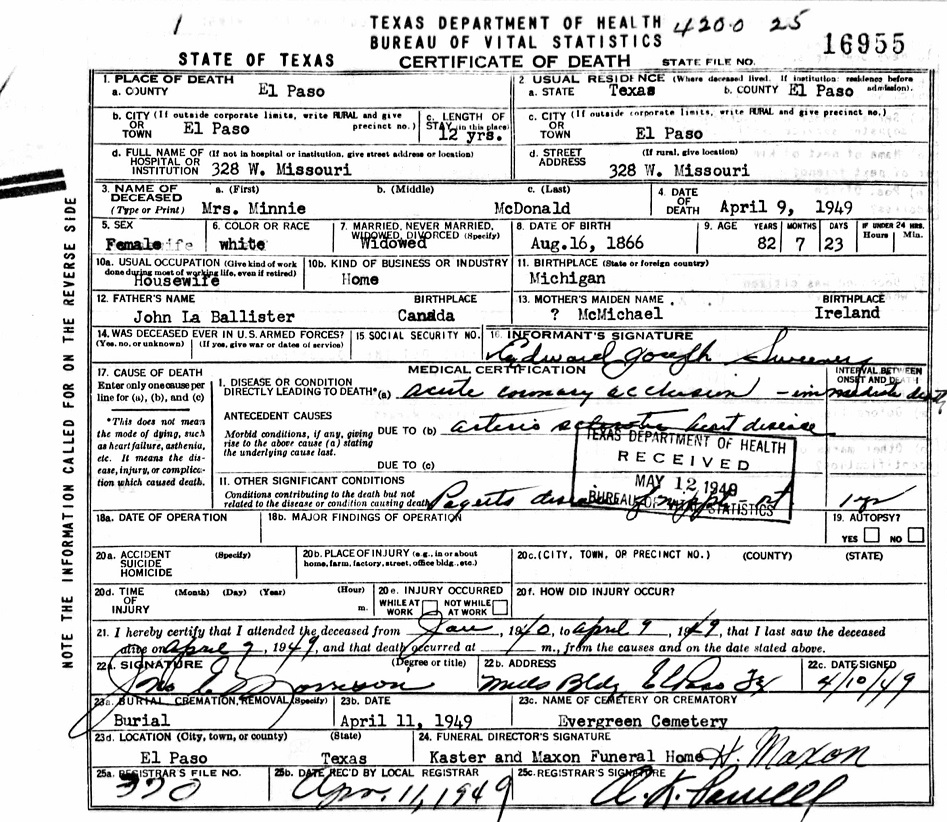 TEXAS DEPARTMENT OF HEALTH 4200 25
BUREAU OF VITAL STATISTICS 16955
STATE OF TEXAS CERTIFICATE OF DEATH STATE FILE NO.
1. PLACE OF DEATH
a. COUNTY El Paso
2. USUAL RESIDENCE (Where deceased lived. If institution: residence before admission).
a. STATE Texas b. COUNTY El Paso
b. CITY (If outside corporate limits, write RURAL and give precinct no.)
OR
TOWN El Paso
c. LENGTH OF STAY (in this place)
12 yrs.
c. CITY (If outside corporate limits, write RURAL and give precinct no.)
OR
TOWN El Paso
d. FULL NAME OF (If not in hospital or institution, give street address or location)
HOSPITAL OR
INSTITUTION 328 W. Missouri
d. STREET (If rural, give location)
ADDRESS 328 W. Missouri
3. NAME OF DECEASED (Type or Print)
a. (First) b. (Middle) c. (Last)
Mrs. Minnie McDonald
4. DATE OF DEATH April 9, 1949
5. SEX
Female
6. COLOR OR RACE
white
7. MARRIED, NEVER MARRIED, WIDOWED, DIVORCED (Specify)
Widowed
8. DATE OF BIRTH
Aug.16, 1866
9. AGE YEARS MONTHS DAYS IF UNDER 24 HRS. Hours Min.
82 7 23
10a. USUAL OCCUPATION (Give kind of work done during most of working life, even if retired)
Housewife
10b. KIND OF BUSINESS OR INDUSTRY
Home
11. BIRTHPLACE (State or foreign country)
Michigan
12. FATHER'S NAME BIRTHPLACE
John La Ballister Canada
13. MOTHER'S MAIDEN NAME BIRTHPLACE
? McMichael Ireland
14. WAS DECEASED EVER IN U.S. ARMED FORCES?
(Yes, no, or unknown) (If yes, give war or dates of service)
15 SOCIAL SECURITY NO.
16. INFORMANT'S SIGNATURE
Edward Joseph Sweeney
17. CAUSE OF DEATH
Enter only one cause per line for (a), (b), and (c)
*This does not mean the mode of dying, such as heart failure, asthenia, etc. It means the disease, injury, or complication which caused death.
MEDICAL CERTIFICATION
INTERVAL BETWEEN ONSET AND DEATH
I. DISEASE OR CONDITION
DIRECTLY LEADING TO DEATH*(a) acute coronary occlusion - immediate death
ANTECEDENT CAUSES
Morbid conditions, if any, giving rise to the above cause (a) stating the underlying cause last.
DUE TO (b) arterio sclerotic heart disease
DUE TO (c)
TEXAS DEPARTMENT OF HEALTH
RECEIVED
MAY 12 1949
BUREAU OF VITAL STATISTICS
II. OTHER SIGNIFICANT CONDITIONS
Conditions contributing to the death but not related to the disease or condition causing death. Pagets disease of nipple - rt 1 yr
18a. DATE OF OPERATION
18b. MAJOR FINDINGS OF OPERATION
19. AUTOPSY?
YES NO
20a. ACCIDENT (Specify)
SUICIDE
HOMICIDE
20b. PLACE OF INJURY (e.g., in or about home, farm, factory, street, office bldg., etc.)
20c. (CITY, TOWN, OR PRECINCT NO.) (COUNTY) (STATE)
20d. TIME (Month) (Day) (Year) (Hour)
OF
INJURY m.
20e. INJURY OCCURRED
WHILE AT WORK NOT WHILE AT WORK
20f. HOW DID INJURY OCCUR?
21. I hereby certify that I attended the deceased from Jan, 1940, to April 9, 1949, that I last saw the deceased
alive on April 9, 1949, and that death occurred at m., from the causes and on the date stated above.
22a. SIGNATURE (Degree or title)
Jno E Morrison
22b. ADDRESS
Mills Bldg El Paso Tx
22c. DATE SIGNED
4/10/49
23a. BURIAL, CREMATION, REMOVAL (Specify)
Burial
23b. DATE
April 11, 1949
23c. NAME OF CEMETERY OR CREMATORY
Evergreen Cemetery
23d. LOCATION (City, town, or county) (State)
El Paso Texas
24. FUNERAL DIRECTOR'S SIGNATURE
Kaster and Maxon Funeral Home H. Maxon
25a. REGISTRAR'S FILE NO.
370
25b. DATE REC'D BY LOCAL REGISTRAR
Apr. 11, 1949
25c. REGISTRAR'S SIGNATURE
NOTE THE INFORMATION CALLED FOR ON THE REVERSE SIDE